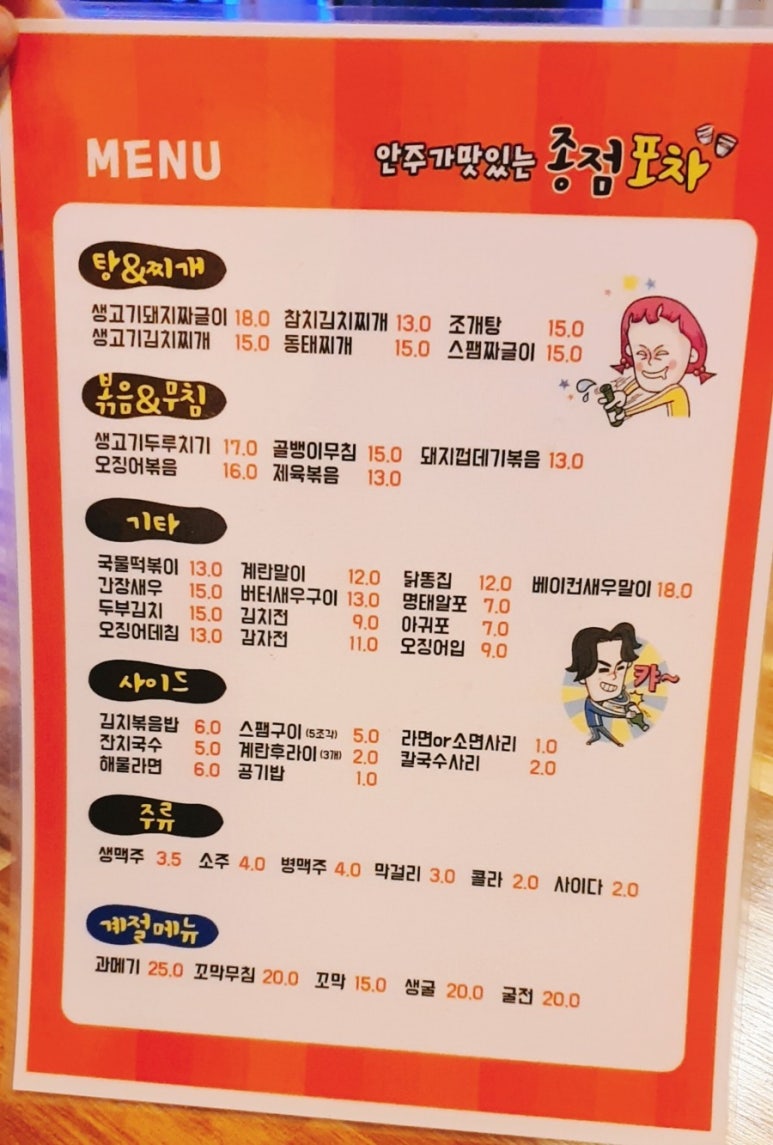 MENU
안주가맛있는 종점포차
탕&찌개
생고기돼지짜글이 18.0 참치김치찌개 13.0 조개탕 15.0
생고기김치찌개 15.0 동태찌개 15.0 스팸짜글이 15.0
볶음&무침
생고기두루치기 17.0 골뱅이무침 15.0 돼지껍데기볶음 13.0
오징어볶음 16.0 제육볶음 13.0
기타
국물떡볶이 13.0 계란말이 12.0 닭똥집 12.0 베이컨새우말이 18.0
간장새우 15.0 버터새우구이 13.0 명태알포 7.0
두부김치 15.0 김치전 9.0 아귀포 7.0
오징어데침 13.0 감자전 11.0 오징어입 9.0
캬~
사이드
김치볶음밥 6.0 스팸구이 (5조각) 5.0 라면or소면사리 1.0
잔치국수 5.0 계란후라이 (3개) 2.0 칼국수사리 2.0
해물라면 6.0 공기밥 1.0
주류
생맥주 3.5 소주 4.0 병맥주 4.0 막걸리 3.0 콜라 2.0 사이다 2.0
계절메뉴
과메기 25.0 꼬막무침 20.0 꼬막 15.0 생굴 20.0 굴전 20.0